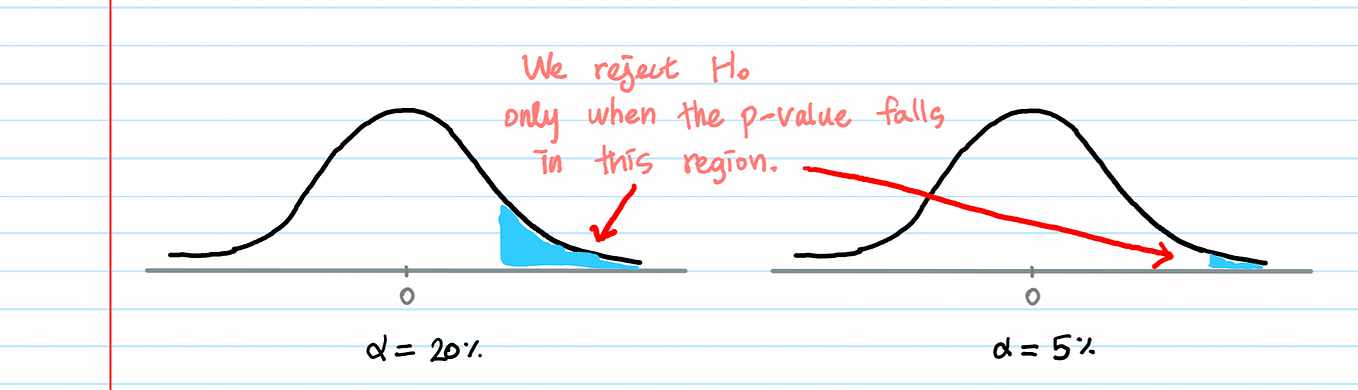 We reject H₀
only when the p-value falls
in this region.
0
0
α = 20%
α = 5%